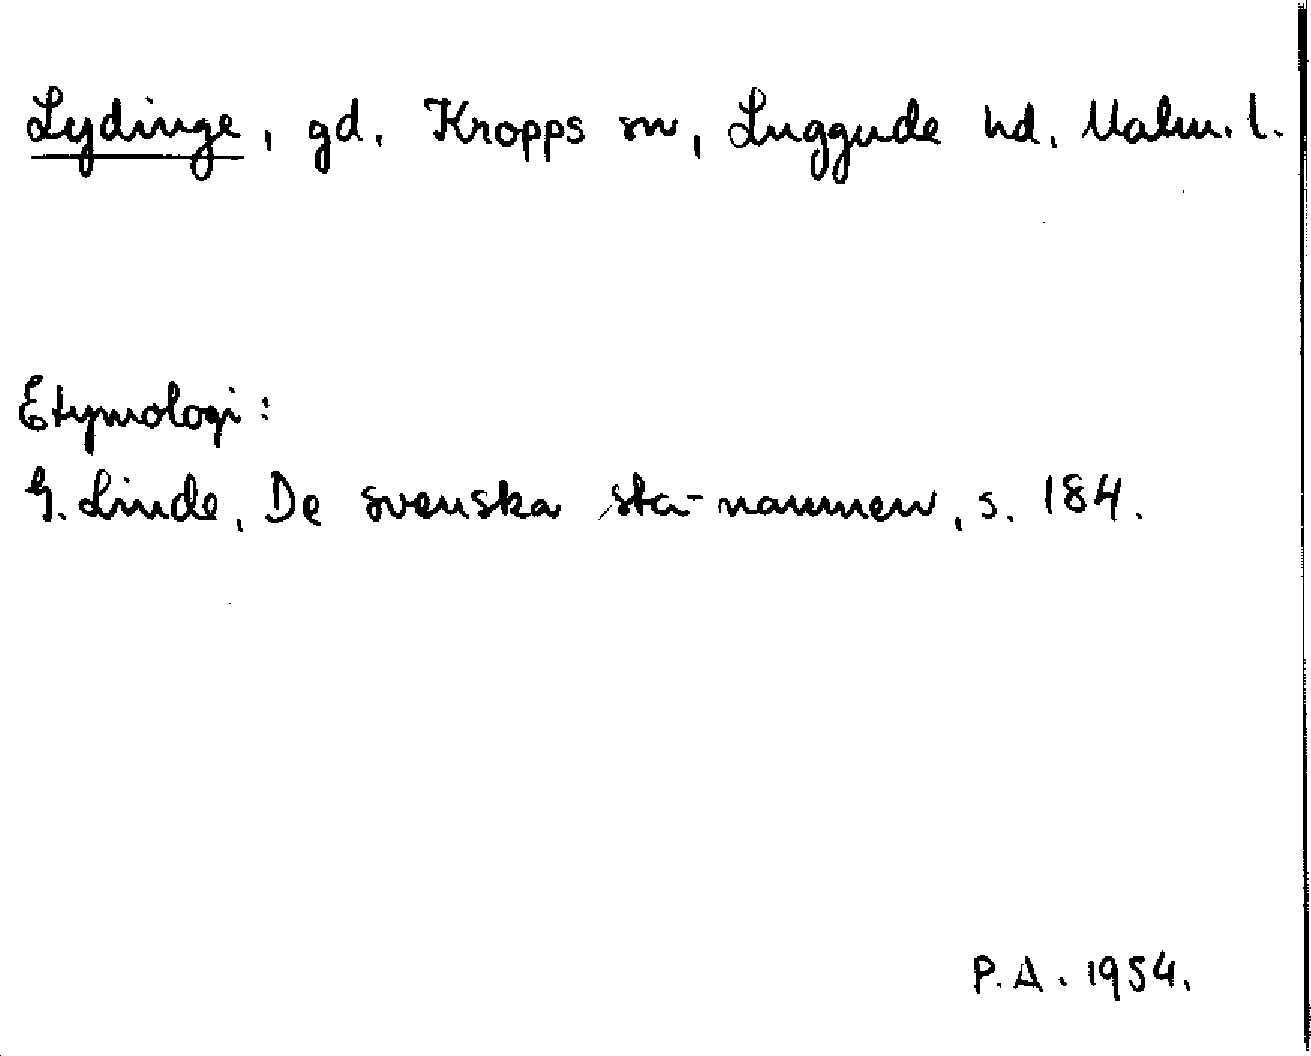 Lydinge, gd. Kropps sn, Luggude hd. Malm. l.
Etymologi:
G. Linde, De svenska sta-namnen, s. 184.
P.A. 1954.